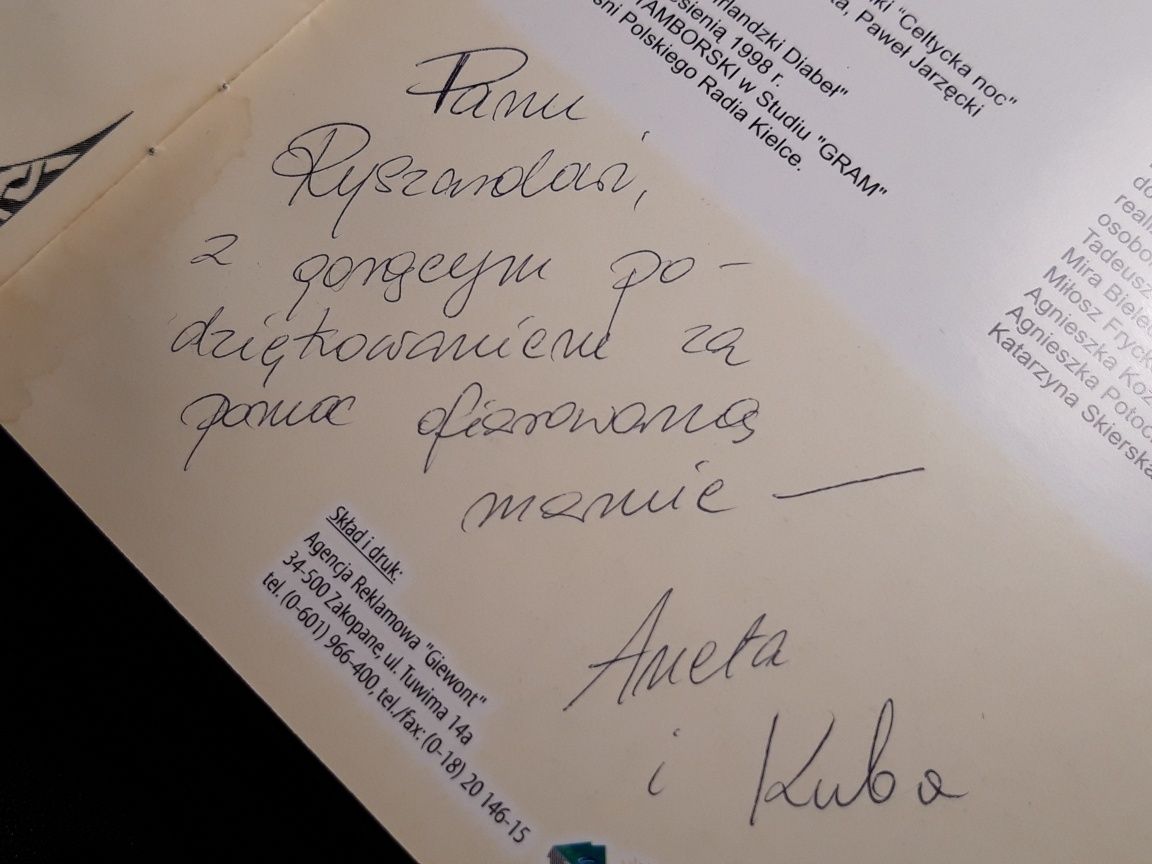 ki "Celtycka noc"
ta, Paweł Jarzęcki
rlandzki Diabeł"
esienią 1998 r.
TAMBORSKI w Studiu "GRAM"
śni Polskiego Radia Kielce.
Panu
Ryszardowi,
z gorącym po-
dziękowaniem za
pomoc ofiarowaną
mamie —
Aneta
i Kuba
Skład i druk:
Agencja Reklamowa "Giewont"
34-500 Zakopane, ul. Tuwima 14a
tel. (0-601) 966-400, tel./fax: (0-18) 20 146-15
do
reali
osobo
Tadeusz
Mira Bielec
Miłosz Fryck
Agnieszka Koz
Agnieszka Potoc
Katarzyna Skierska